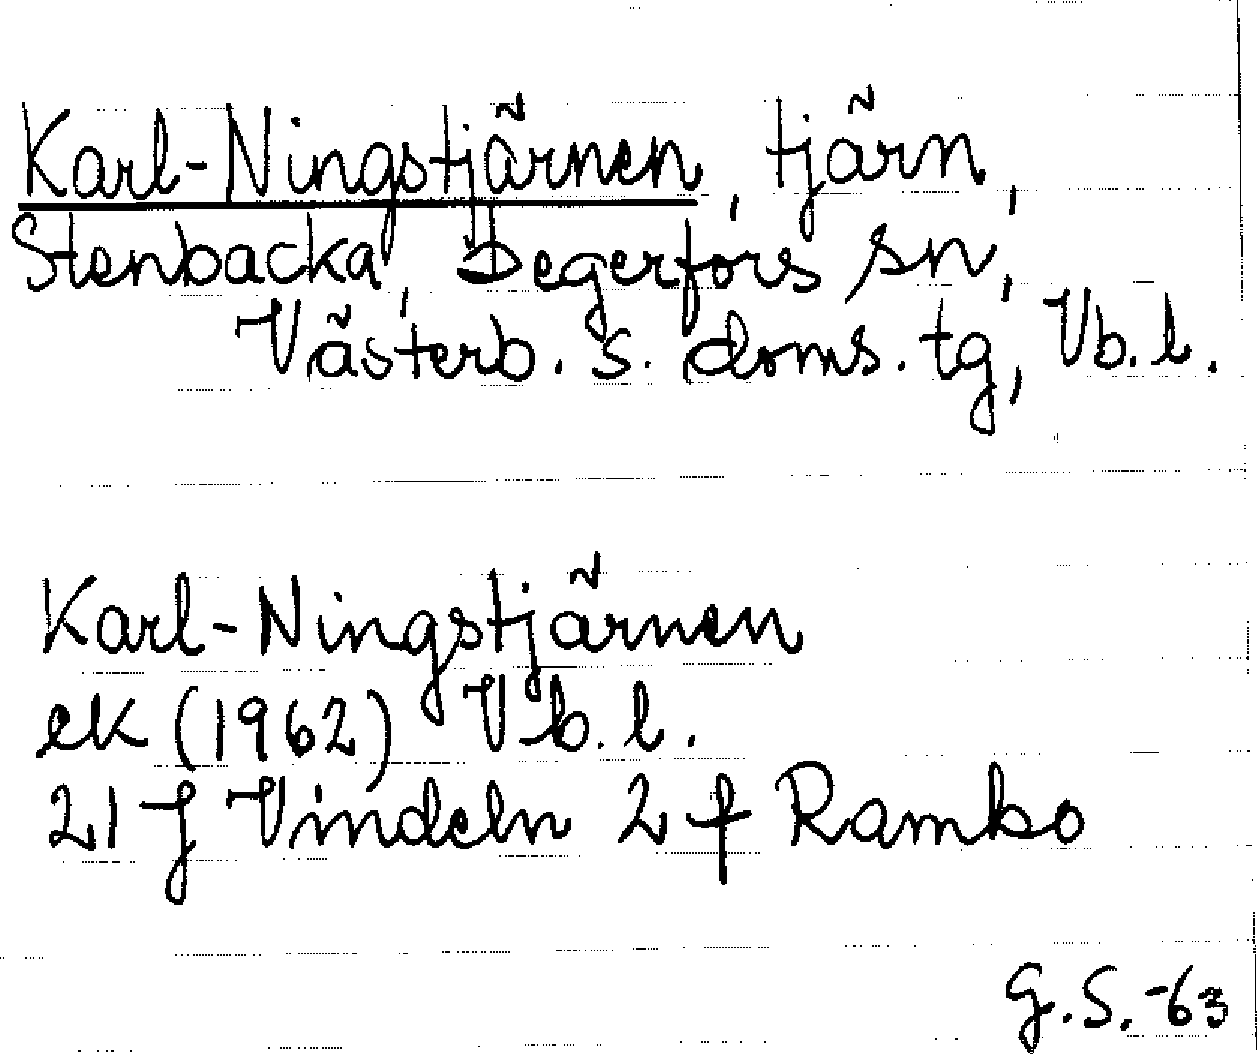 Karl-Ningstjärnen, tjärn,
Stenbacka, Degerfors sn,
Västerb. s. doms. tg, Vb. l.
Karl-Ningstjärnen
ek (1962) Vb. l.
21 J Vindeln 2 f Rambo
G.S. -63